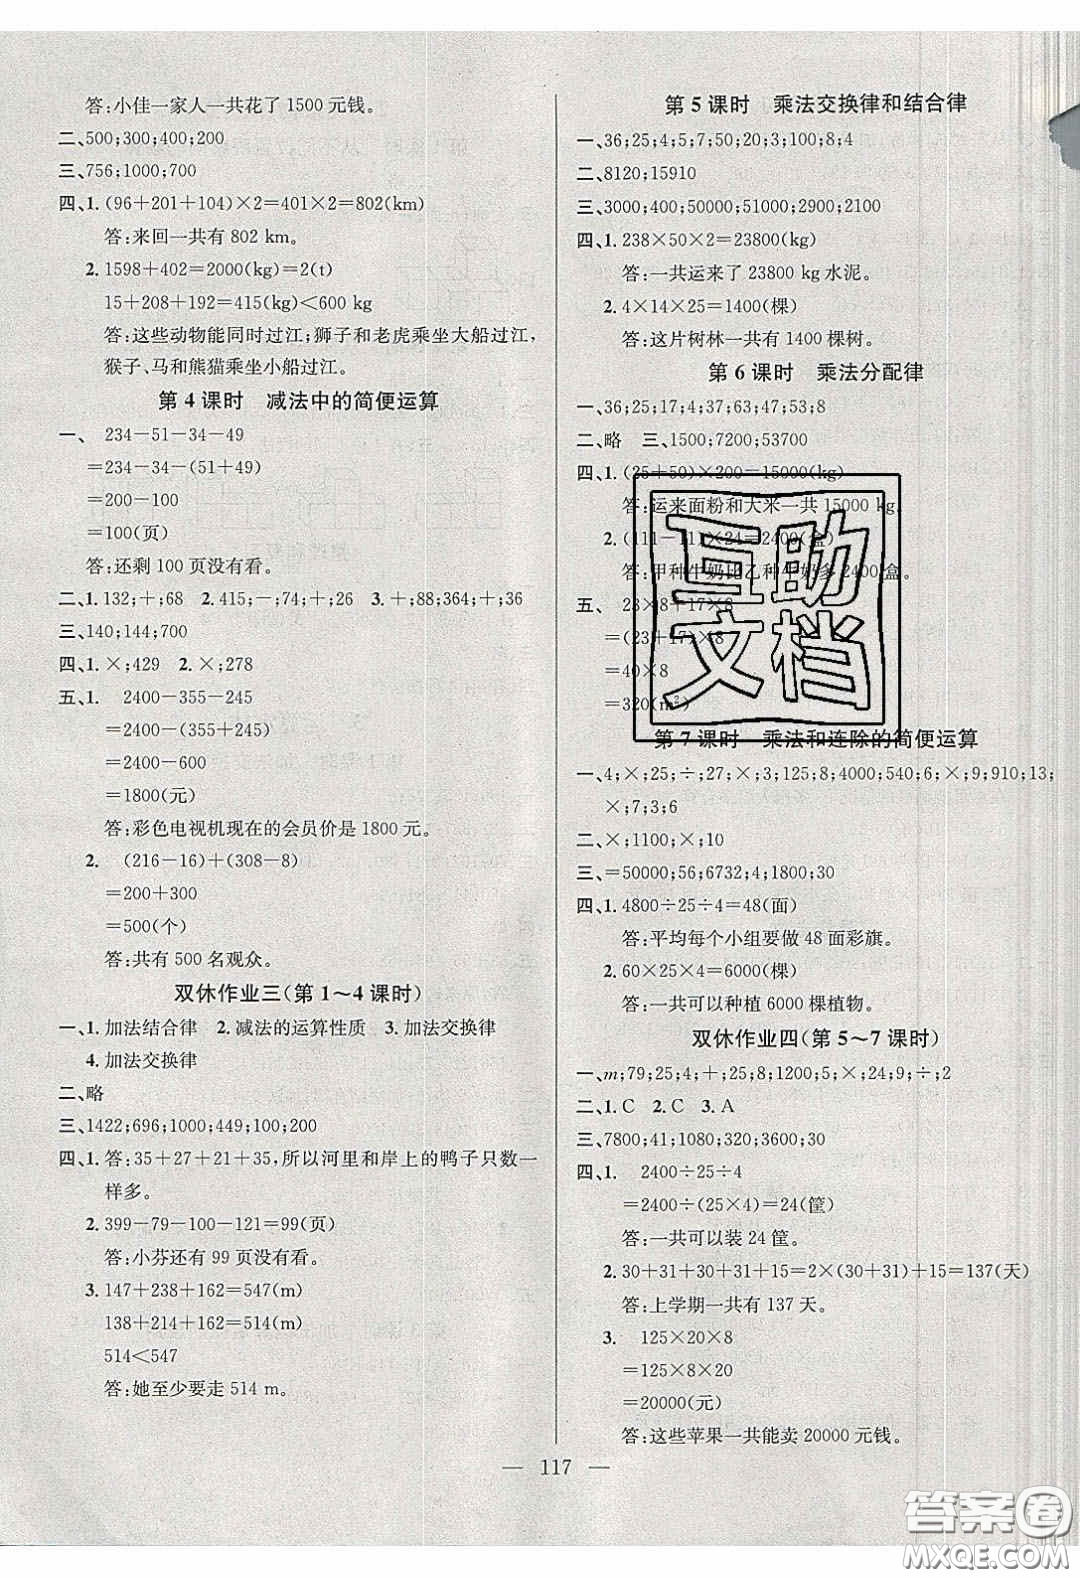 答:小佳一家人一共花了 1500 元钱。
二、500;300;400;200
三、756;1000;700
四、1. (96+201+104)×2=401×2=802(km)
答:来回一共有 802 km。
2. 1598+402=2000(kg)=2(t)
15+208+192=415(kg)<600 kg
答:这些动物能同时过江;狮子和老虎乘坐大船过江,
猴子、马和熊猫乘坐小船过江。
第 4 课时 减法中的简便运算
一、 234-51-34-49
=234-34-(51+49)
=200-100
=100(页)
答:还剩 100 页没有看。
二、1. 132;+;68 2. 415;-;74;+;26 3. +;88;364;+;36
三、140;144;700
四、1. ×;429 2. ×;278
五、1. 2400-355-245
=2400-(355+245)
=2400-600
=1800(元)
答:彩色电视机现在的会员价是 1800 元。
2. (216-16)+(308-8)
=200+300
=500(个)
答:共有 500 名观众。
双休作业三(第 1~4 课时)
一、1. 加法结合律 2. 减法的运算性质 3. 加法交换律
4. 加法交换律
二、略
三、1422;696;1000;449;100;200
四、1. 答:35+27+21+35,所以河里和岸上的鸭子只数一
样多。
2. 399-79-100-121=99(页)
答:小芬还有 99 页没有看。
3. 147+238+162=547(m)
138+214+162=514(m)
514<547
答:她至少要走 514 m。
第 5 课时 乘法交换律和结合律
一、36;25;4;5;7;50;20;3;100;8;4
二、8120;15910
三、3000;400;50000;51000;2900;2100
四、1. 238×50×2=23800(kg)
答:一共运来了 23800 kg 水泥。
2. 4×14×25=1400(棵)
答:这片树林一共有 1400 棵树。
第 6 课时 乘法分配律
一、36;25;17;4;37;63;47;53;8
二、略 三、1500;7200;53700
四、1. (25+50)×200=15000(kg)
答:运来面粉和大米一共 15000 kg。
2. (111-11)×24=2400(盒)
答:甲种牛奶比乙种牛奶多 2400 盒。
五、 23×8+17×8
=(23+17)×8
=40×8
=320(m²)
互助
文档
第 7 课时 乘法和连除的简便运算
一、4;×;25;÷;27;×;3;125;8;4000;540;6;×;9;910;13;
×;7;3;6
二、×;1100;×;10
三、=50000;56;6732;4;1800;30
四、1. 4800÷25÷4=48(面)
答:平均每个小组要做 48 面彩旗。
2. 60×25×4=6000(棵)
答:一共可以种植 6000 棵植物。
双休作业四(第 5~7 课时)
一、m;79;25;4;+;25;8;1200;5;×;24;9;÷;2
二、1. C 2. C 3. A
三、7800;41;1080;320;3600;30
四、1. 2400÷25÷4
=2400÷(25×4)=24(筐)
答:一共可以装 24 筐。
2. 30+31+30+31+15=2×(30+31)+15=137(天)
答:上学期一共有 137 天。
3. 125×20×8
=125×8×20
=20000(元)
答:这些苹果一共能卖 20000 元钱。
— 117 —
答案圈
MXQE.COM